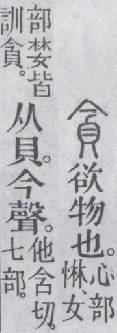 貪欲物也。心部惏女
部婪皆訓貪。从貝。今聲。他含切。七部。